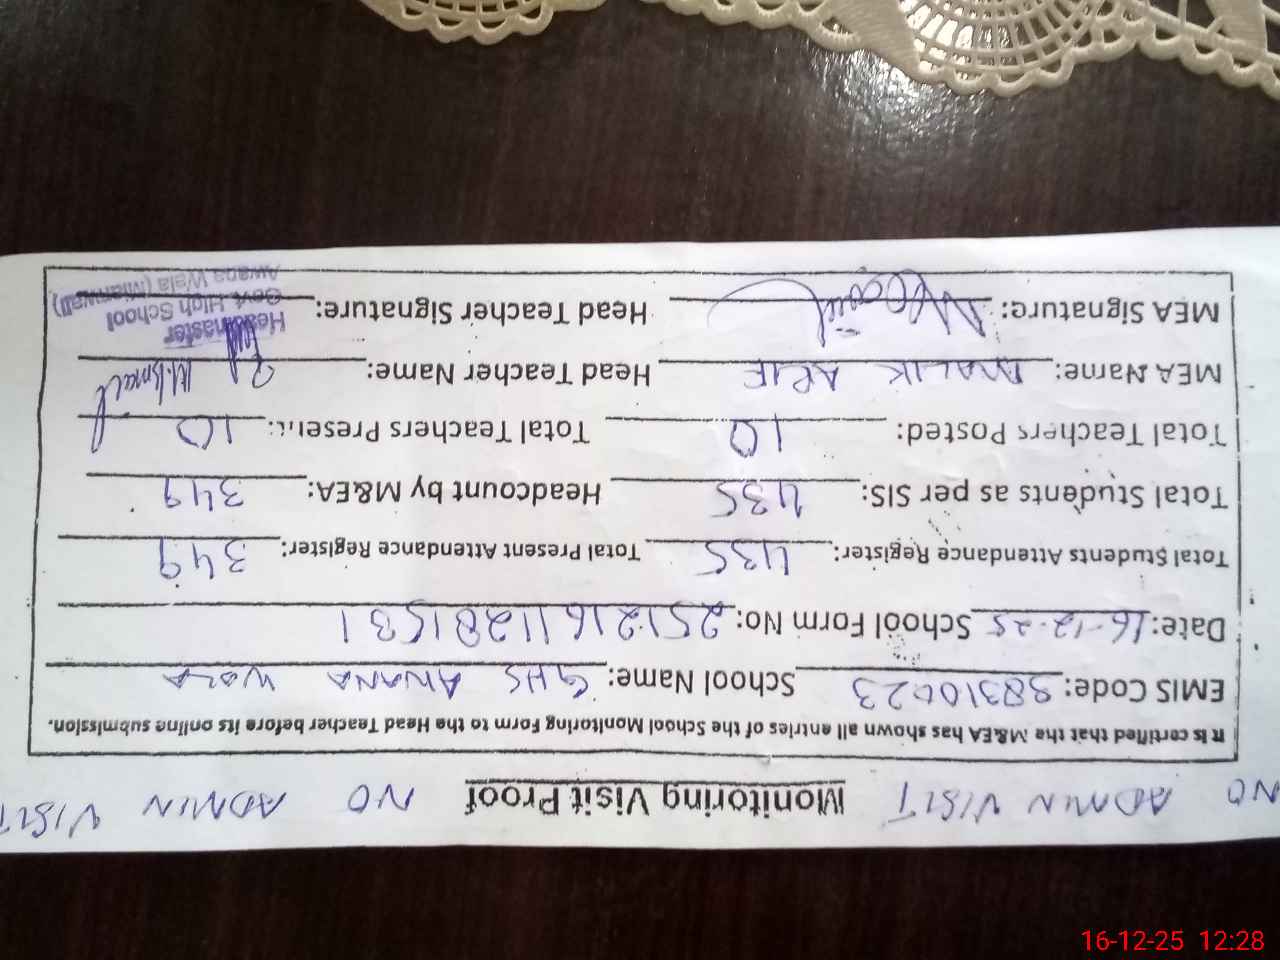 NO ADMIN VISIT Monitoring Visit Proof NO ADMIN VISIT
It is certified that the M&EA has shown all entries of the School Monitoring Form to the Head Teacher before its online submission.
EMIS Code: 38310023 School Name: GHS AWANA Wala
Date: 16-12-25 School Form No: 25121611281531
Total Students Attendance Register: 435 Total Present Attendance Register: 349
Total Students as per SIS: 435 Headcount by M&EA: 349
Total Teachers Posted: 10 Total Teachers Present: 10
MEA Name: MALIK ARIF Head Teacher Name: M.Ismail
MEA Signature: Head Teacher Signature:
Headmaster
Govt. High School
Awana Wala (Mianwali)
16-12-25 12:28